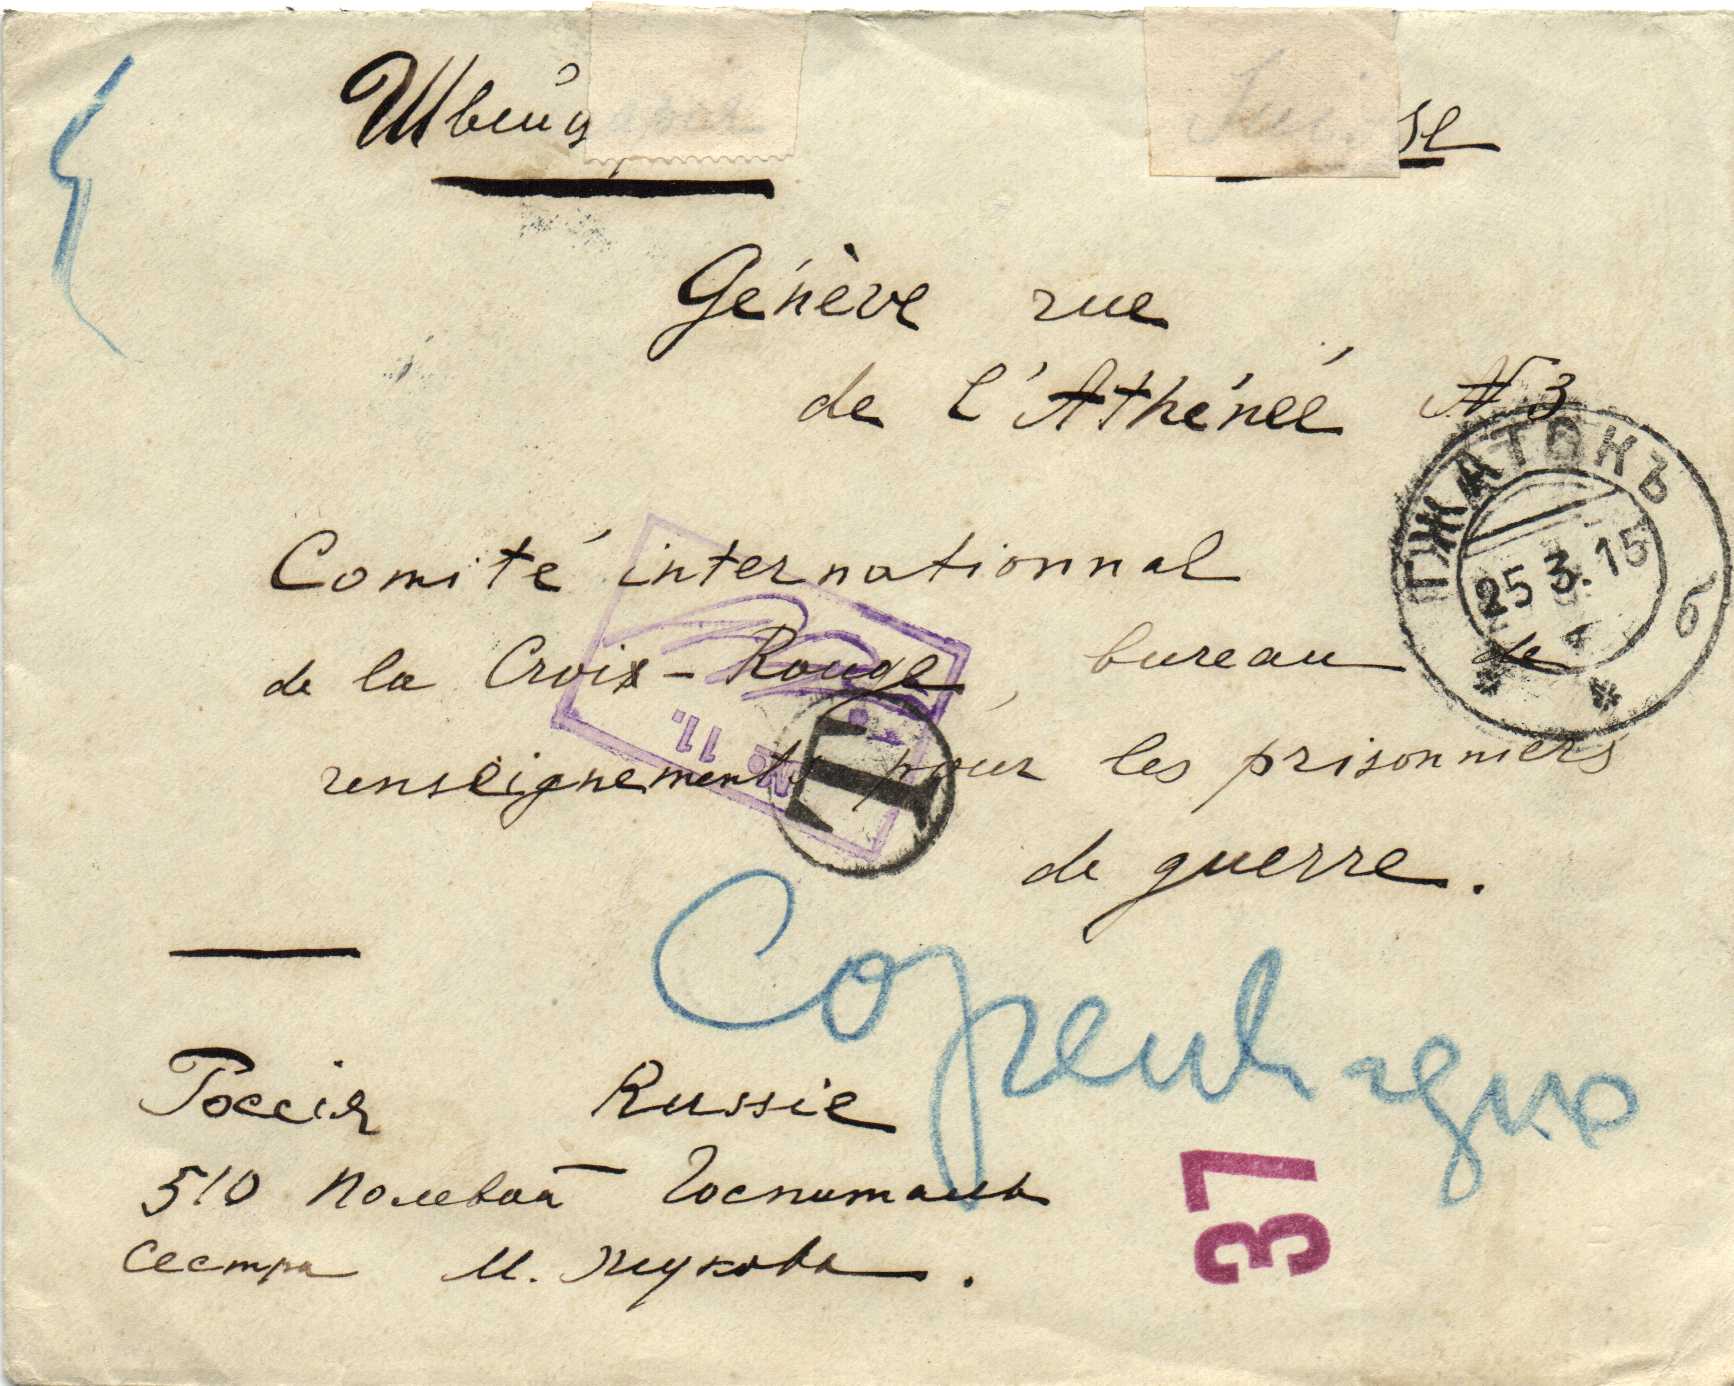 Швейцарія Suisse
Génève rue
de l'Athénée N 3
ГЖАТСКЪ
25 3. 15
б
Comité internationnal
de la Croix-Rouge, bureau de
renseignements pour les prisonniers
de guerre.
No 11.
T
Copenhague
Россія Russie
510 полевой Госпиталь
Сестра М.
37